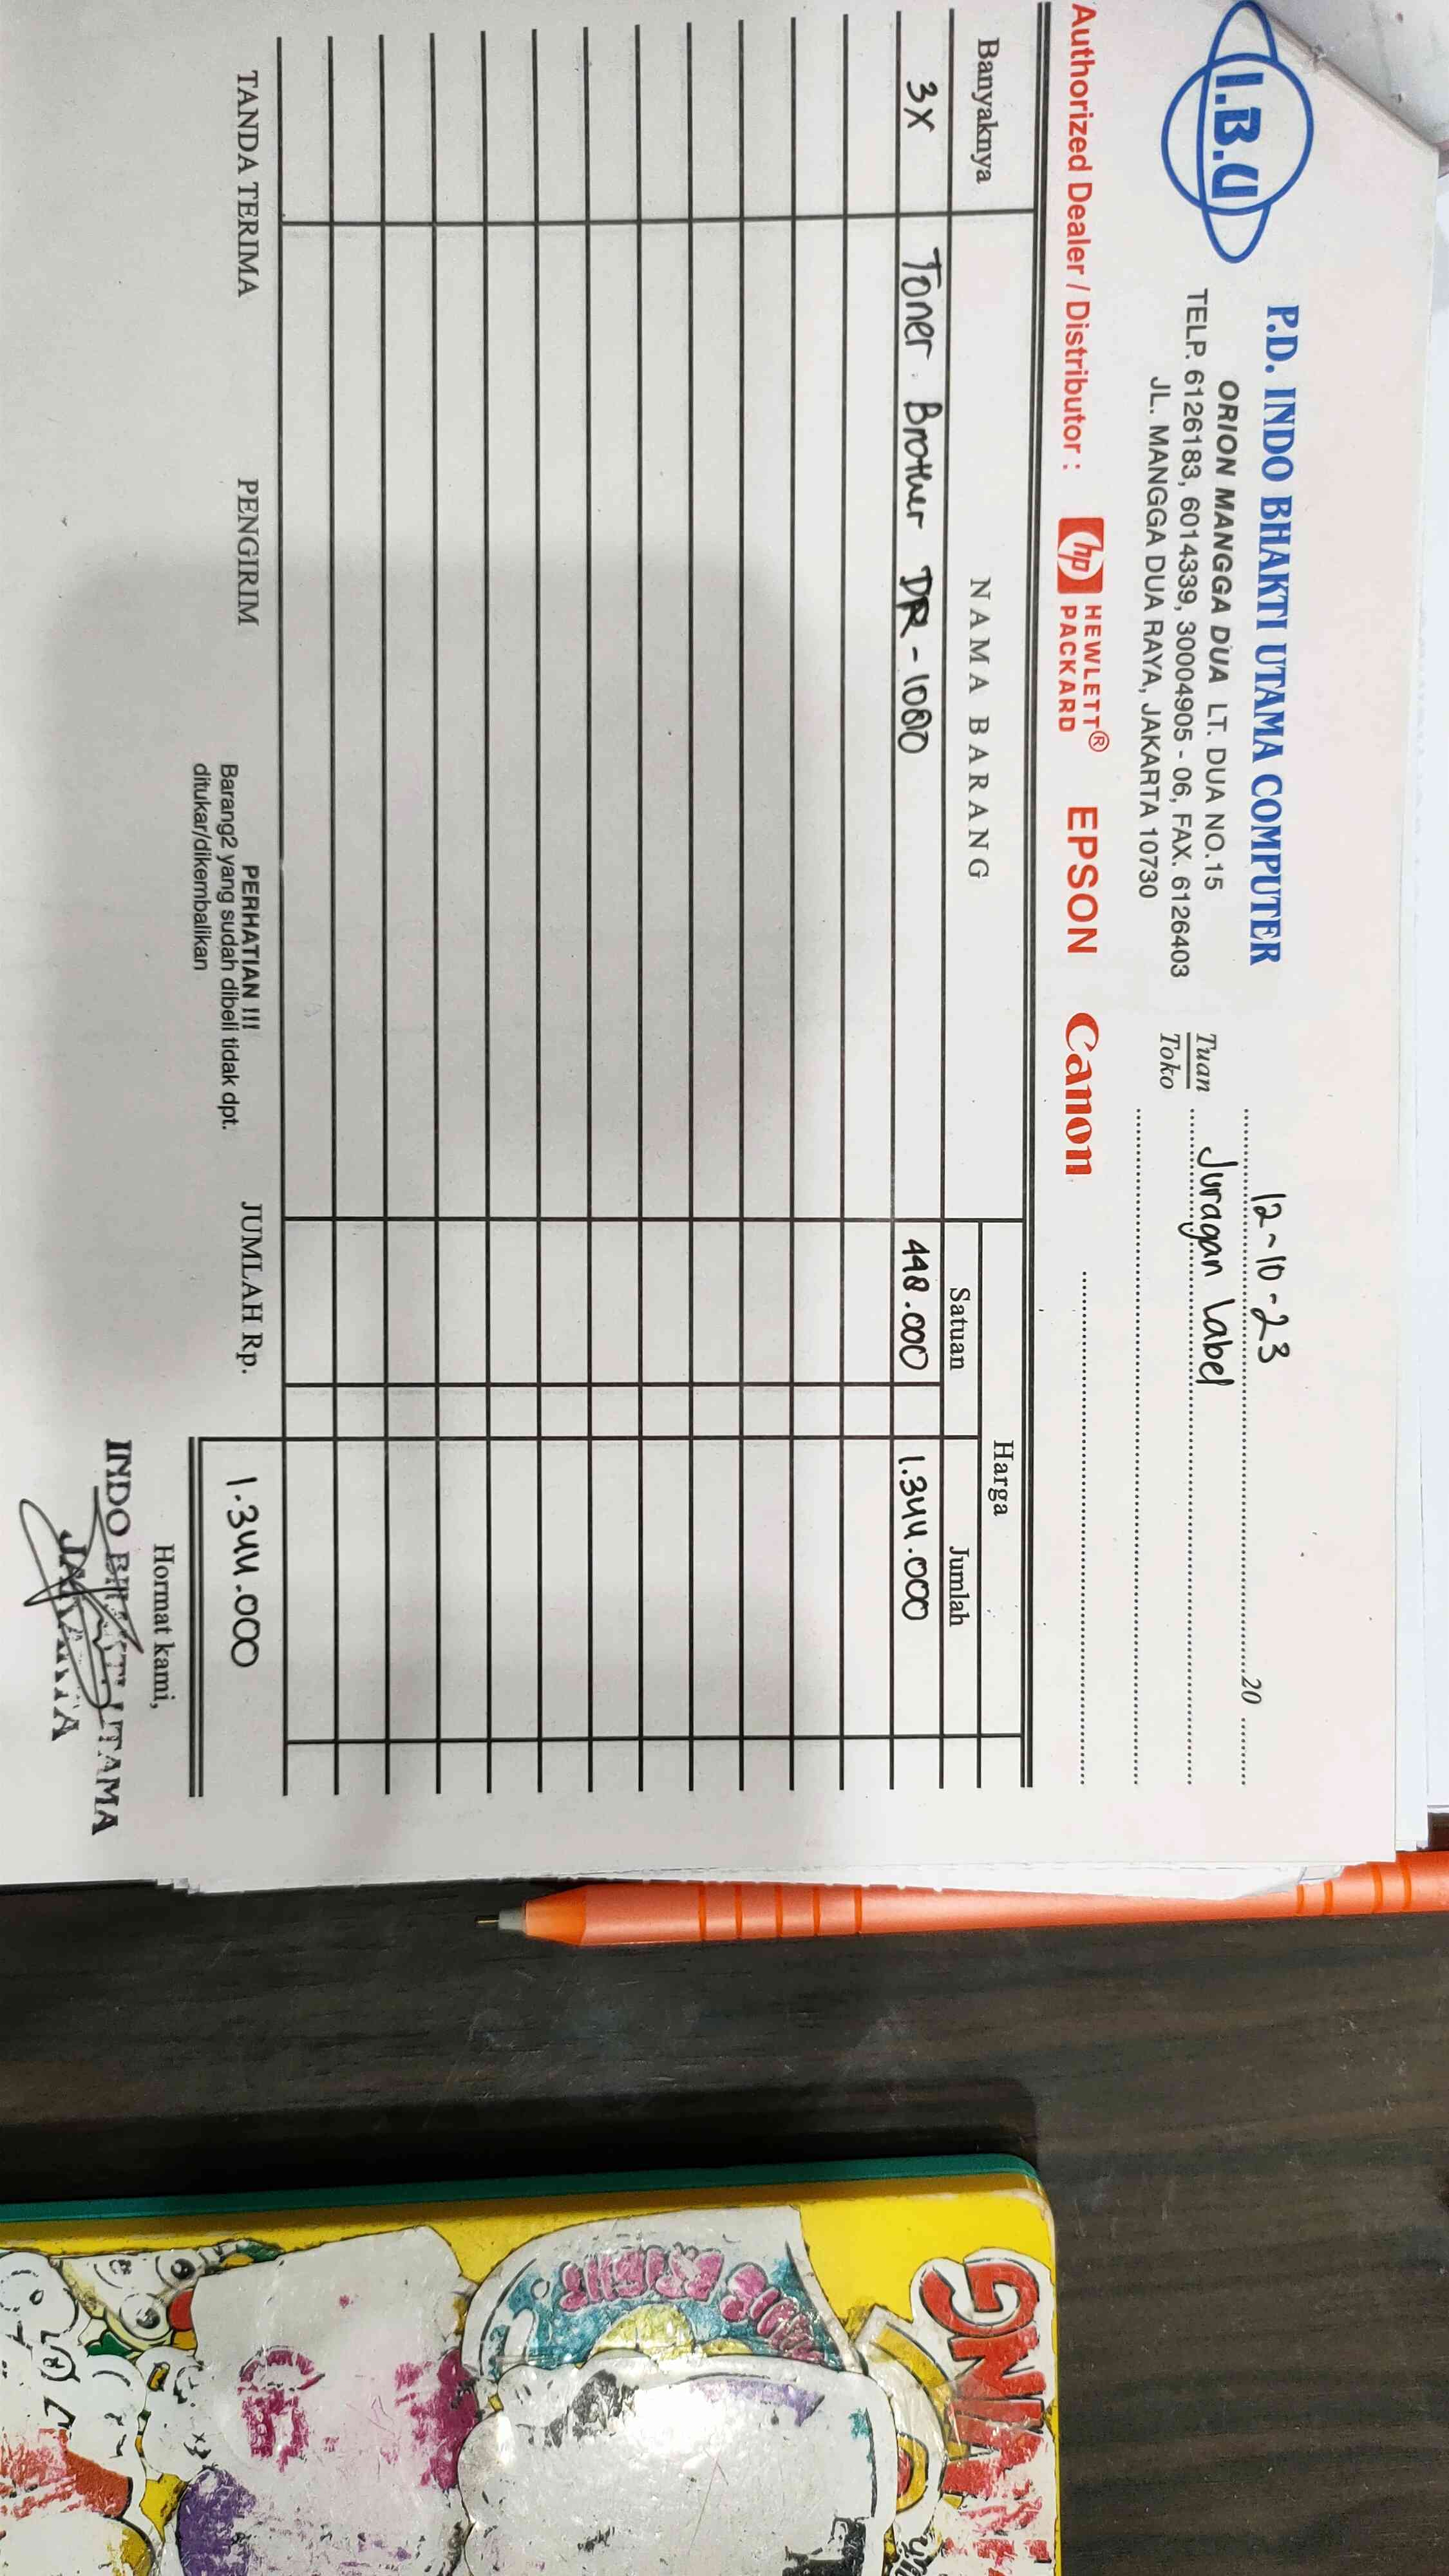 I.B.U
P.D. INDO BHAKTI UTAMA COMPUTER
ORION MANGGA DUA LT. DUA NO.15
TELP. 6126183, 6014339, 30004905 - 06, FAX. 6126403
JL. MANGGA DUA RAYA, JAKARTA 10730
12-10-23 20
Tuan Juragan Label
Toko
Authorized Dealer / Distributor : hp HEWLETT® PACKARD EPSON Canon
Banyaknya NAMA BARANG Harga
Satuan Jumlah
3X Toner Brother DR-1080 448.000 1.344.000
TANDA TERIMA PENGIRIM JUMLAH Rp. 1.344.000
PERHATIAN !!!
Barang2 yang sudah dibeli tidak dpt.
ditukar/dikembalikan
Hormat kami,
INDO BHAKTI UTAMA
JAKARTA